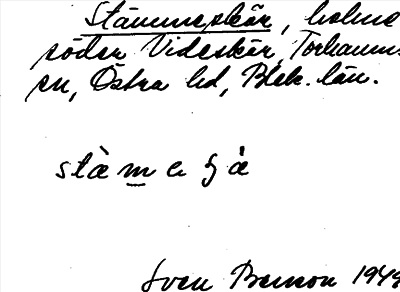 Stämmeskär, holme
söder Videskär, Torhamns
sn, Östra hd, Blek. län.
Sven Benson 1949